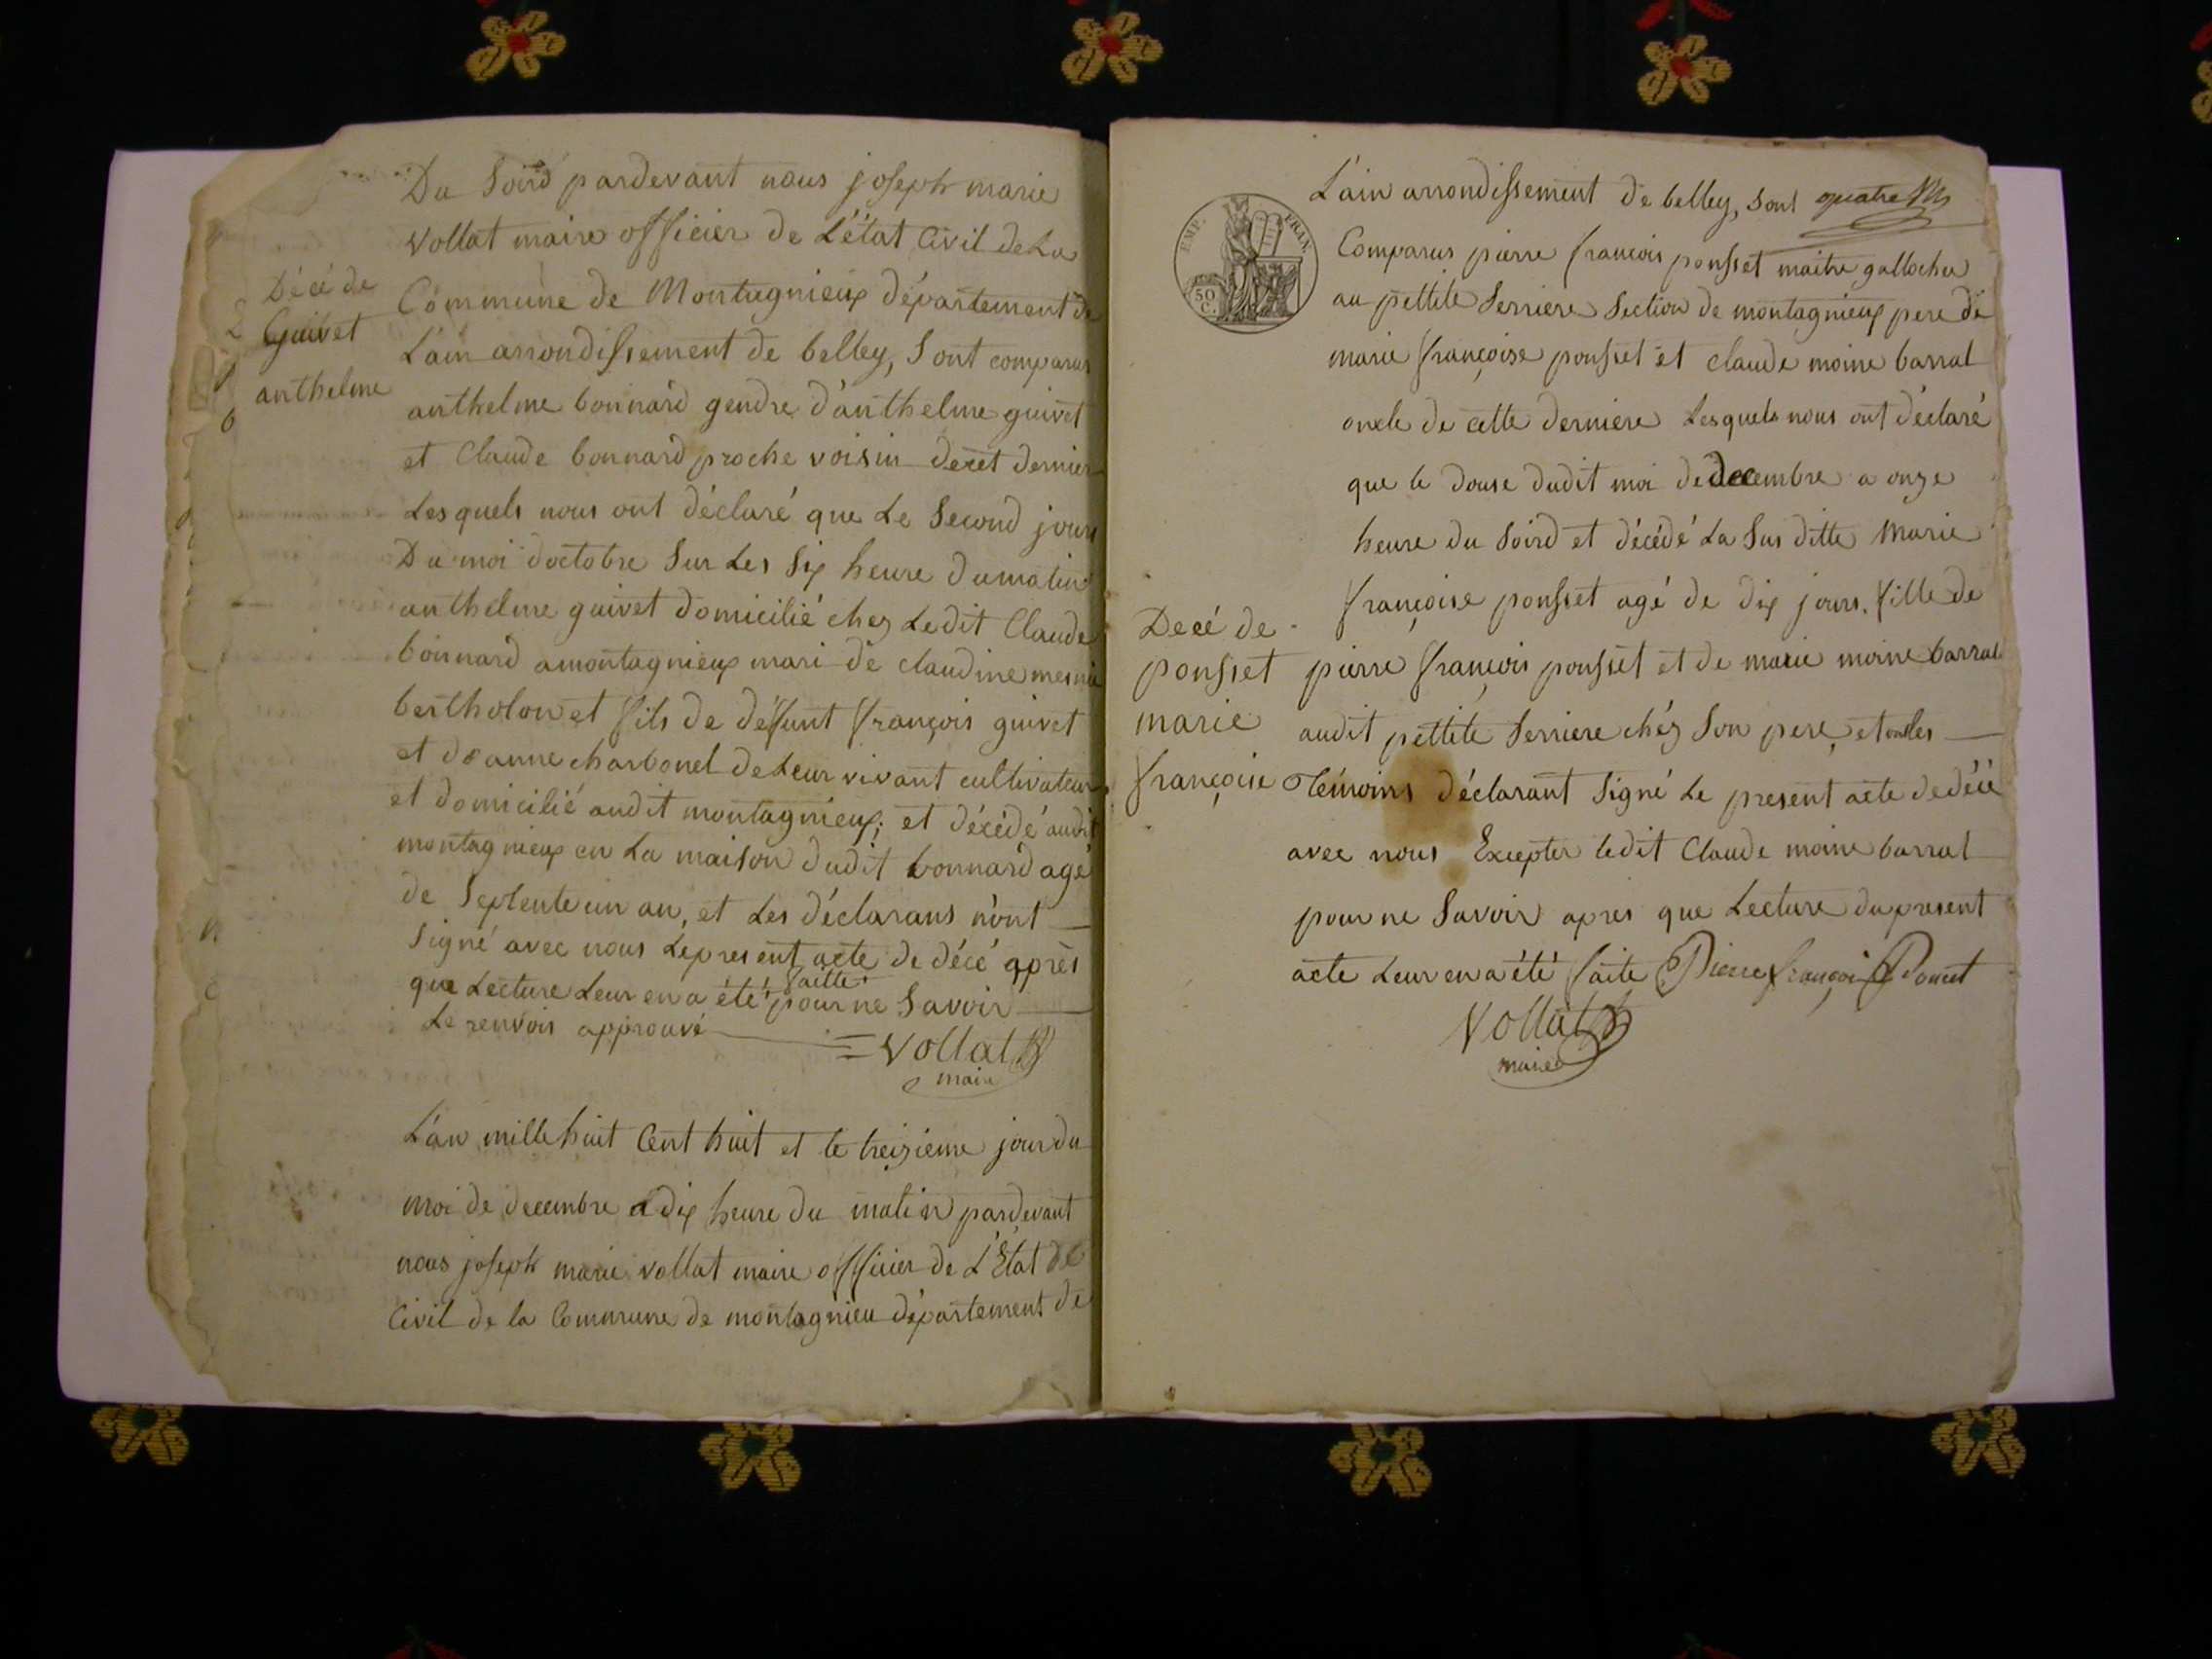 Du Soird pardevant nous joseph marie
Vollat maire officier de L'état Civil de La
Décé de
Guivet
anthelme
Commune de Montagnieux département de
L'ain arrondissement de belley, Sont comparus
anthelme bonnard gendre d'anthelme guivet
et Claude bonnard proche voisin de cet dernier
Lesquels nous ont déclaré que Le Second jours
Du moi d'octobre Sur Les Six heure du matin
anthelme guivet domicilié chez Ledit Claude
bonnard a montagnieux mari de claudine
bertholon et fils de défunt françois guivet
et d'anne charbonel de Leur vivant cultivateur
et domicilié audit montagnieux; et décédé audit
montagnieux en La maison dudit bonnard agé
de Septente un an, et Les déclarans n'ont
Signé avec nous Le present acte de décé après
que Lecture Leur en a été faitte pour ne Savoir
Le renvois approuvé
Vollat
maire
L'an mille huit Cent huit et le treizieme jour du
moi de decembre a dix heure du matin pardevant
nous joseph marie vollat maire officier de L'État de
Civil de la Commune de montagnieu département de
EMP. FRAN.
50
C.
L'ain arrondissement de belley, Sont quatre
Comparus pierre françois ponsset maitre gallocher
au pettite Serriere Section de montagnieux pere de
marie françoise ponsset et claude moine barral
oncle de cette derniere Lesquels nous ont déclaré
que le douse dudit moi de decembre a onze
heure du Soird et décédé La Sus ditte Marie
françoise ponsset agé de dix jours. fille de
Decé de
ponsset
marie
françoise
pierre françois ponsset et de marie moine barral
audit pettite Serriere chéz Son pere, et ont les
Témoins déclarant Signé Le present acte de décé
avec nous Excepter ledit Claude moine barral
pour ne Savoir apres que Lecture du present
acte Leur en a été faite Pierre françois Poncet
Vollat
maire